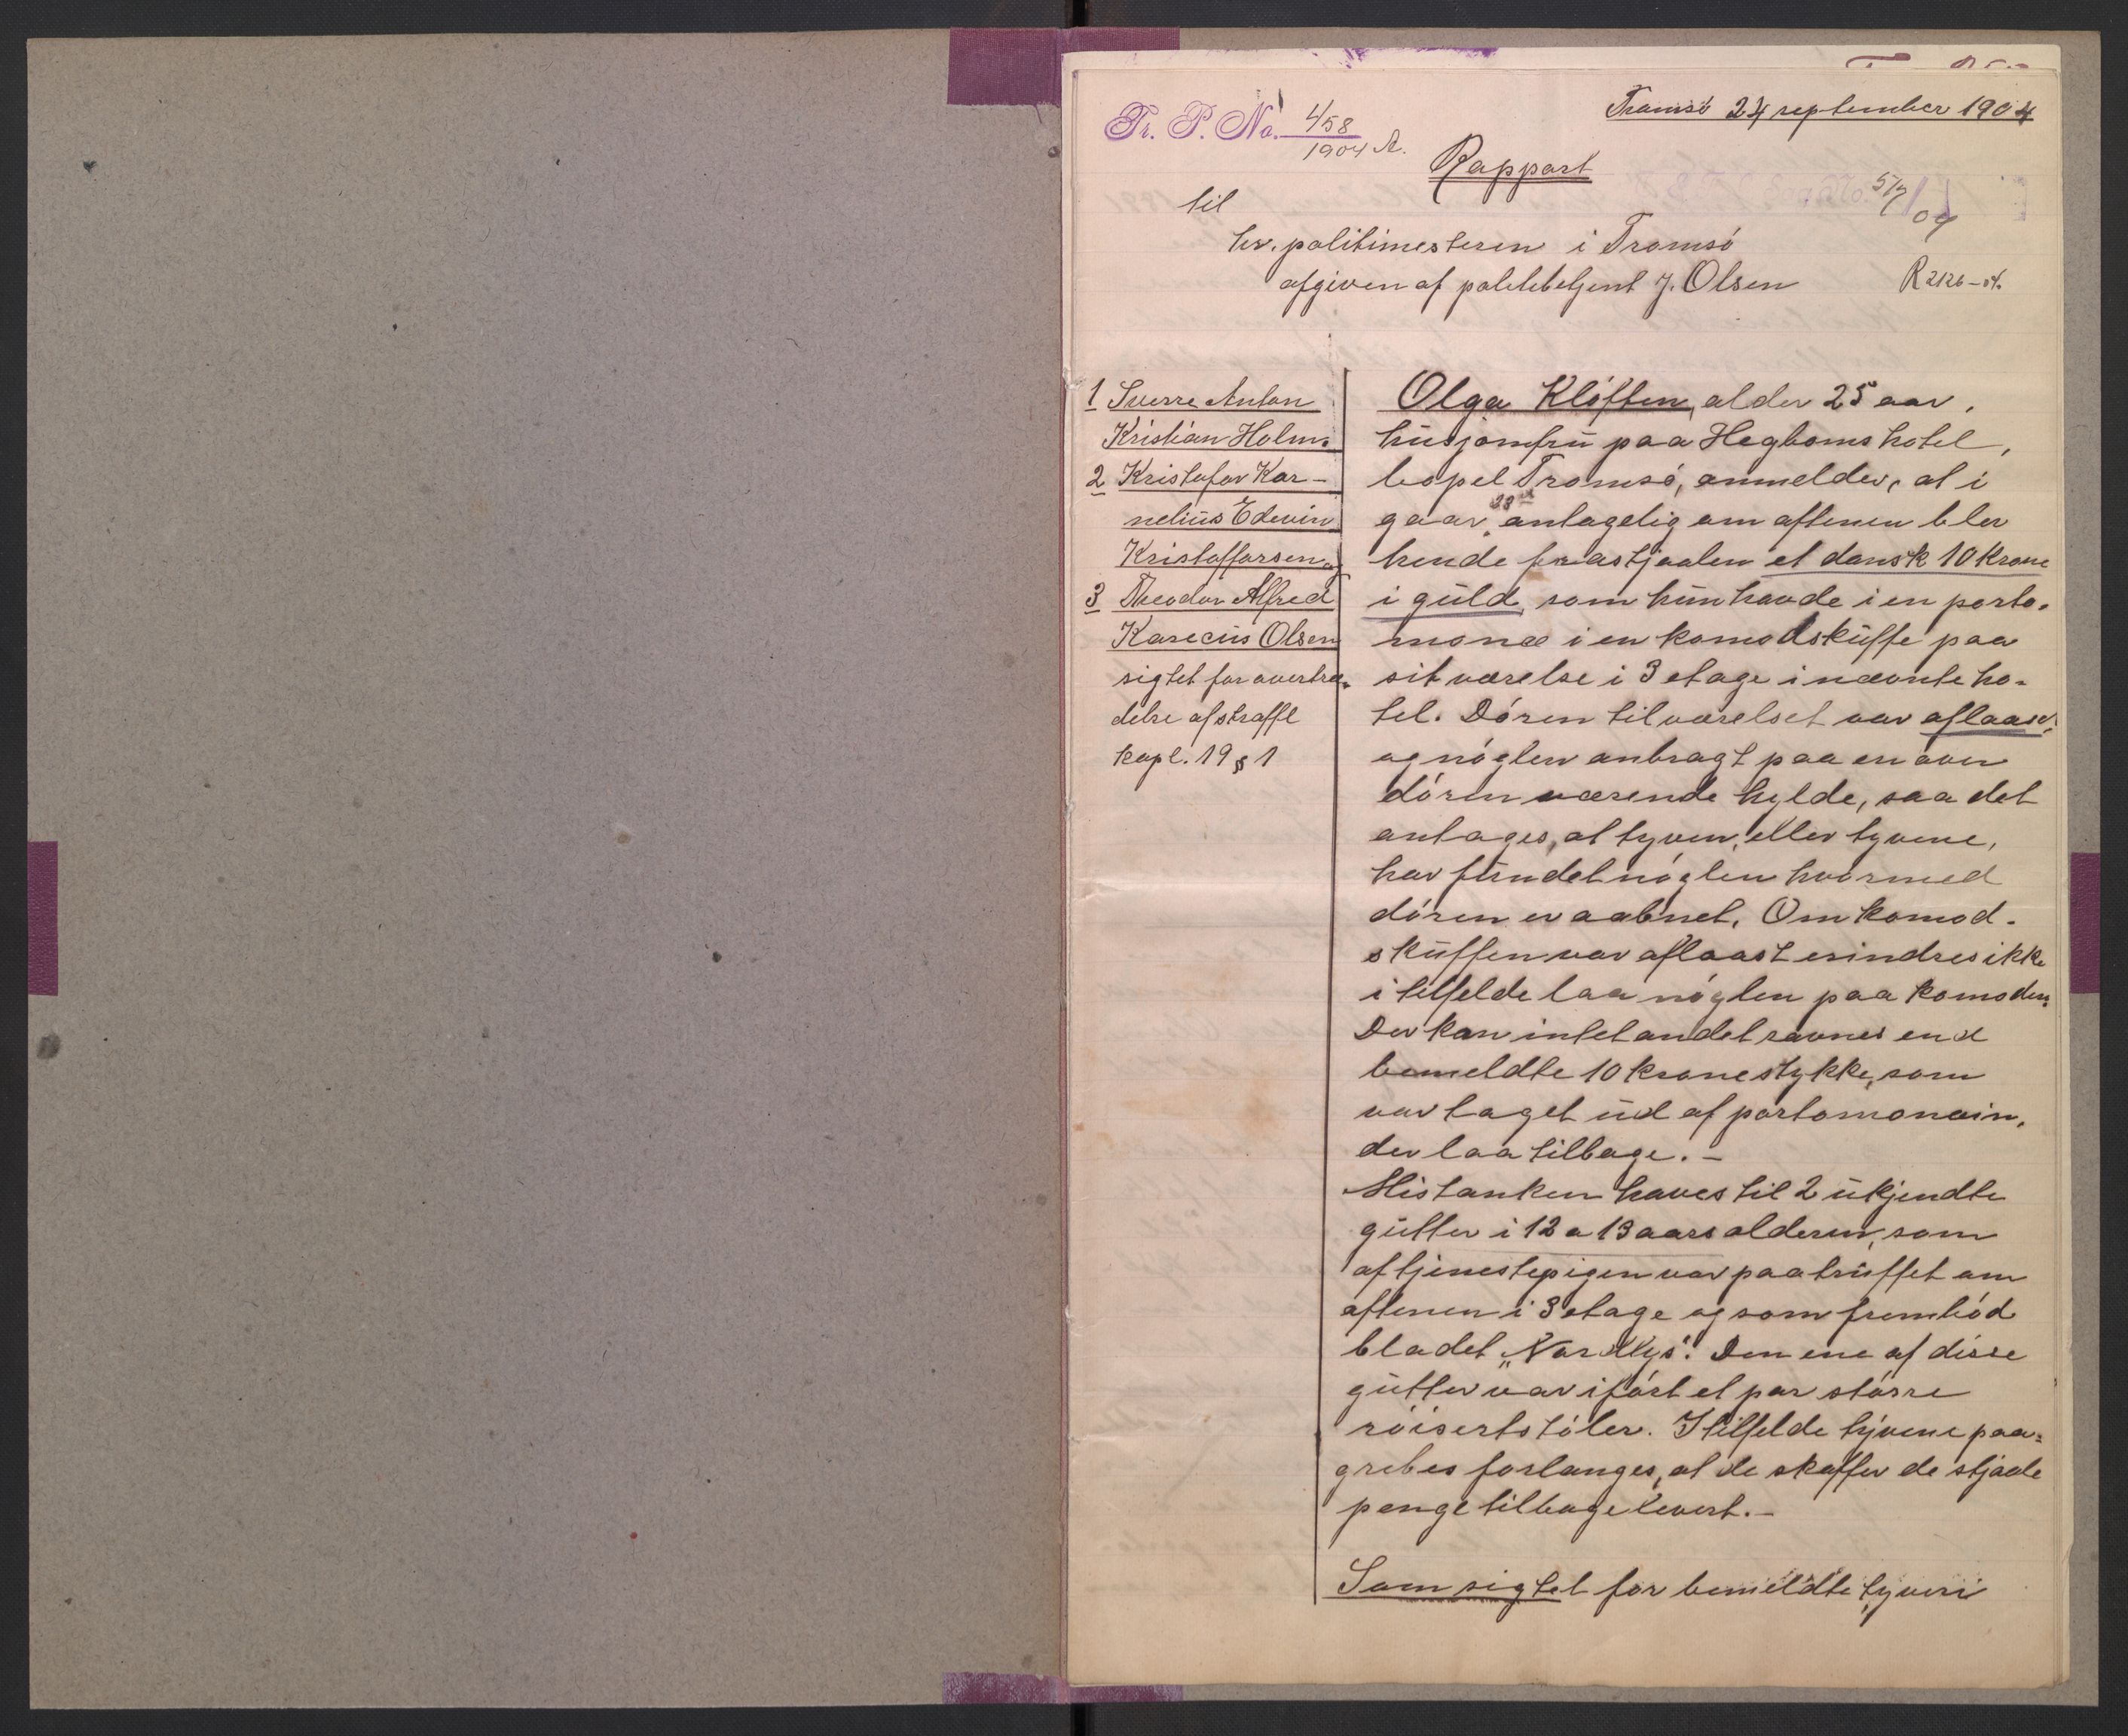 Tromsö 24 september 1904
Tr. P. No. 458/1904 A.
Rapport
57/04
til
hr. politimesteren i Tromsö
afgiven af politibetjent J. Olsen
R 2126-04.
1 Sverre Anton
Kristian Holm.
2 Kristofer Kor-
nelius Edevin
Kristoffersen og
3 Theodor Alfred
Olsen
sigtet for overtræ-
delse af straffl
kapl. 19 § 1
Olga Klöften, alder 25 aar,
husjomfru paa Hegboms hotel,
bopel Tromsö, anmelder, at i
gaar 23de antagelig om aftenen blev
hende frastjaalen et dansk 10 krone
i guld, som hun havde i en porto-
monæ i en komodskuffe paa
sit værelse i 3 etage i nævnte ho-
tel. Dören til værelset var aflaast,
og nöglen anbragt paa en over
dören værende hylde, saa det
antages, at tyven, eller tyvene,
har fundet nöglen hvormed
dören er aabnet. Om komod-
skuffen var aflaast erindres ikke
i tilfelde laa nöglen paa komoden.
Der kan intet andet savnes end
bemeldte 10 kronestykke, som
var taget ud af portomonæin,
der laa tilbage. -
Mistanken haves til 2 ukjendte
gutter i 12 a 13 aars alderen, som
af tjenestepigen var paatruffet om
aftenen i 3 etage og som fremböd
bladet „Nordlys". Den ene af disse
gutter var iført et par större
röisertstöler. I tilfelde tyvene paa-
gribes forlanges, at de skaffer de stjaale
penge tilbage levert. -
Som sigtet for bemeldte tyveri